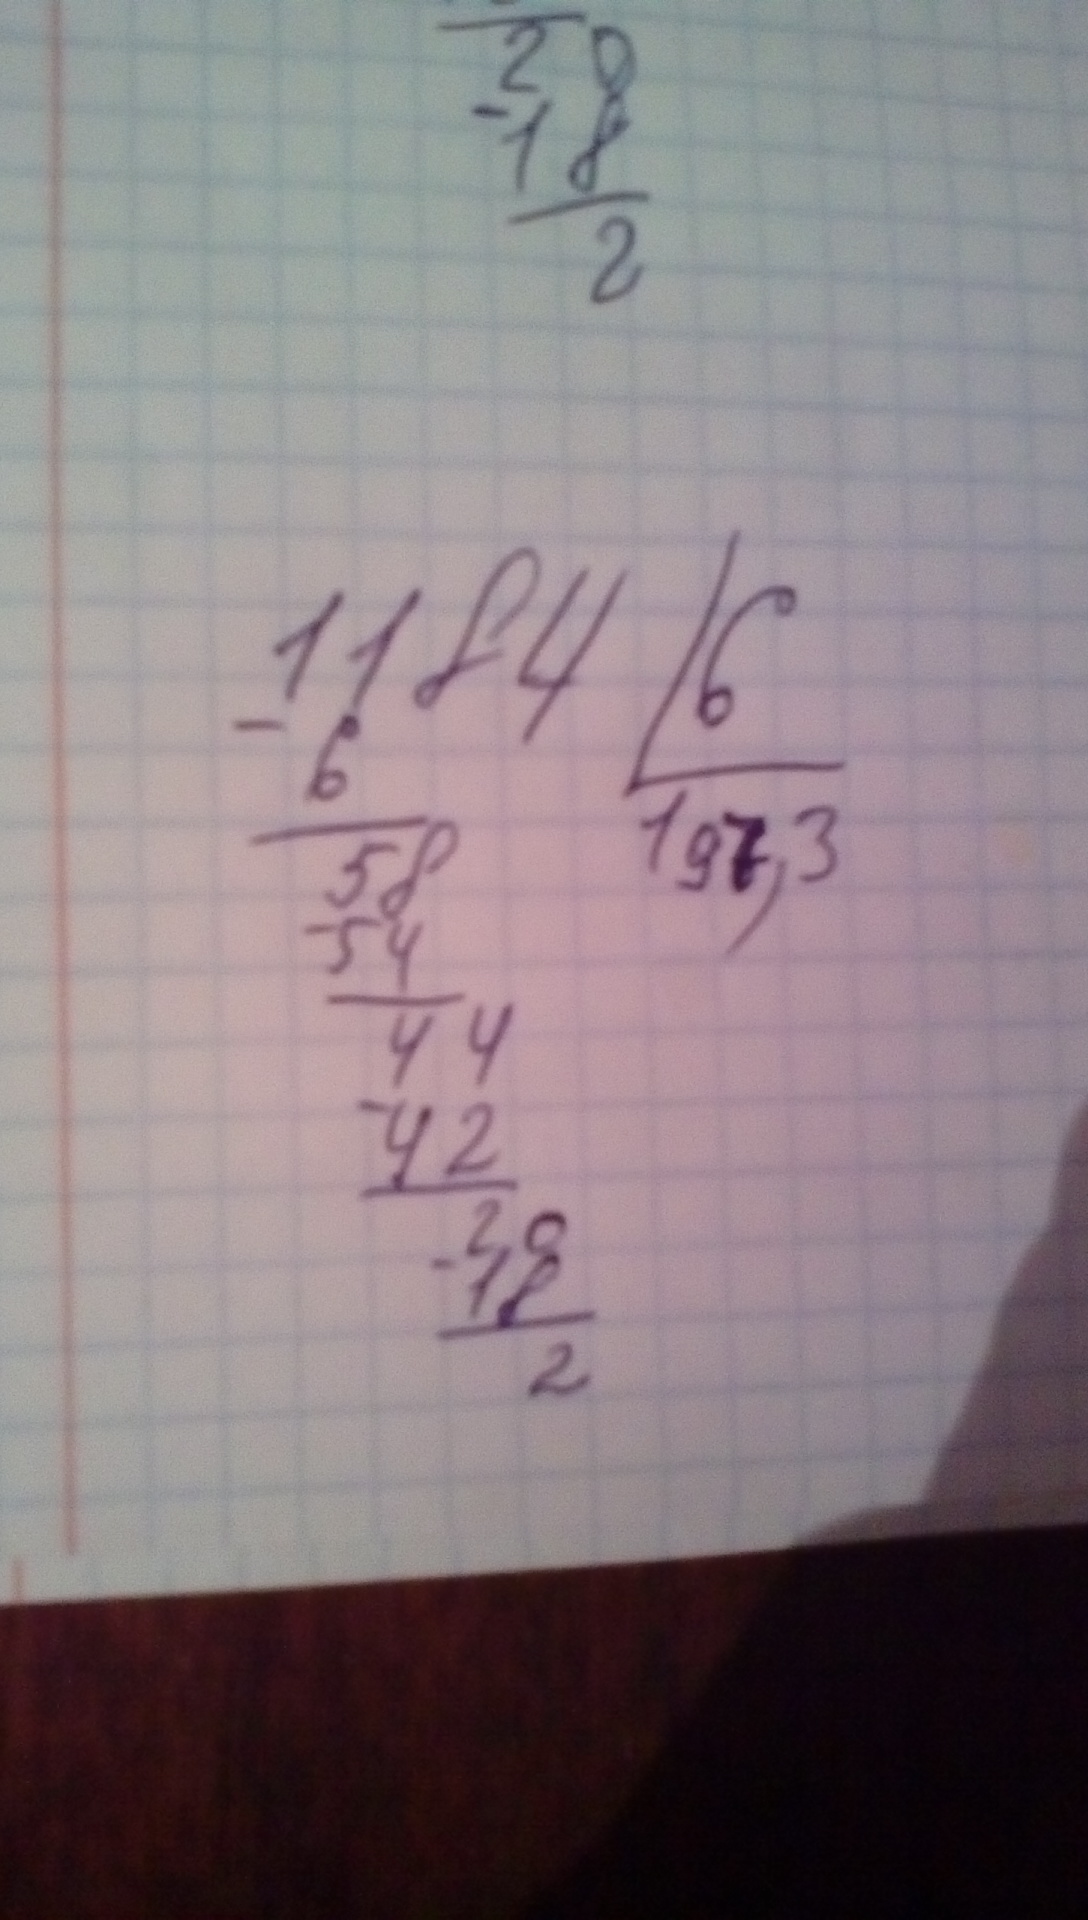 20
-18
2
1184 6
-6 197,3
58
-54
44
-42
20
-18
2